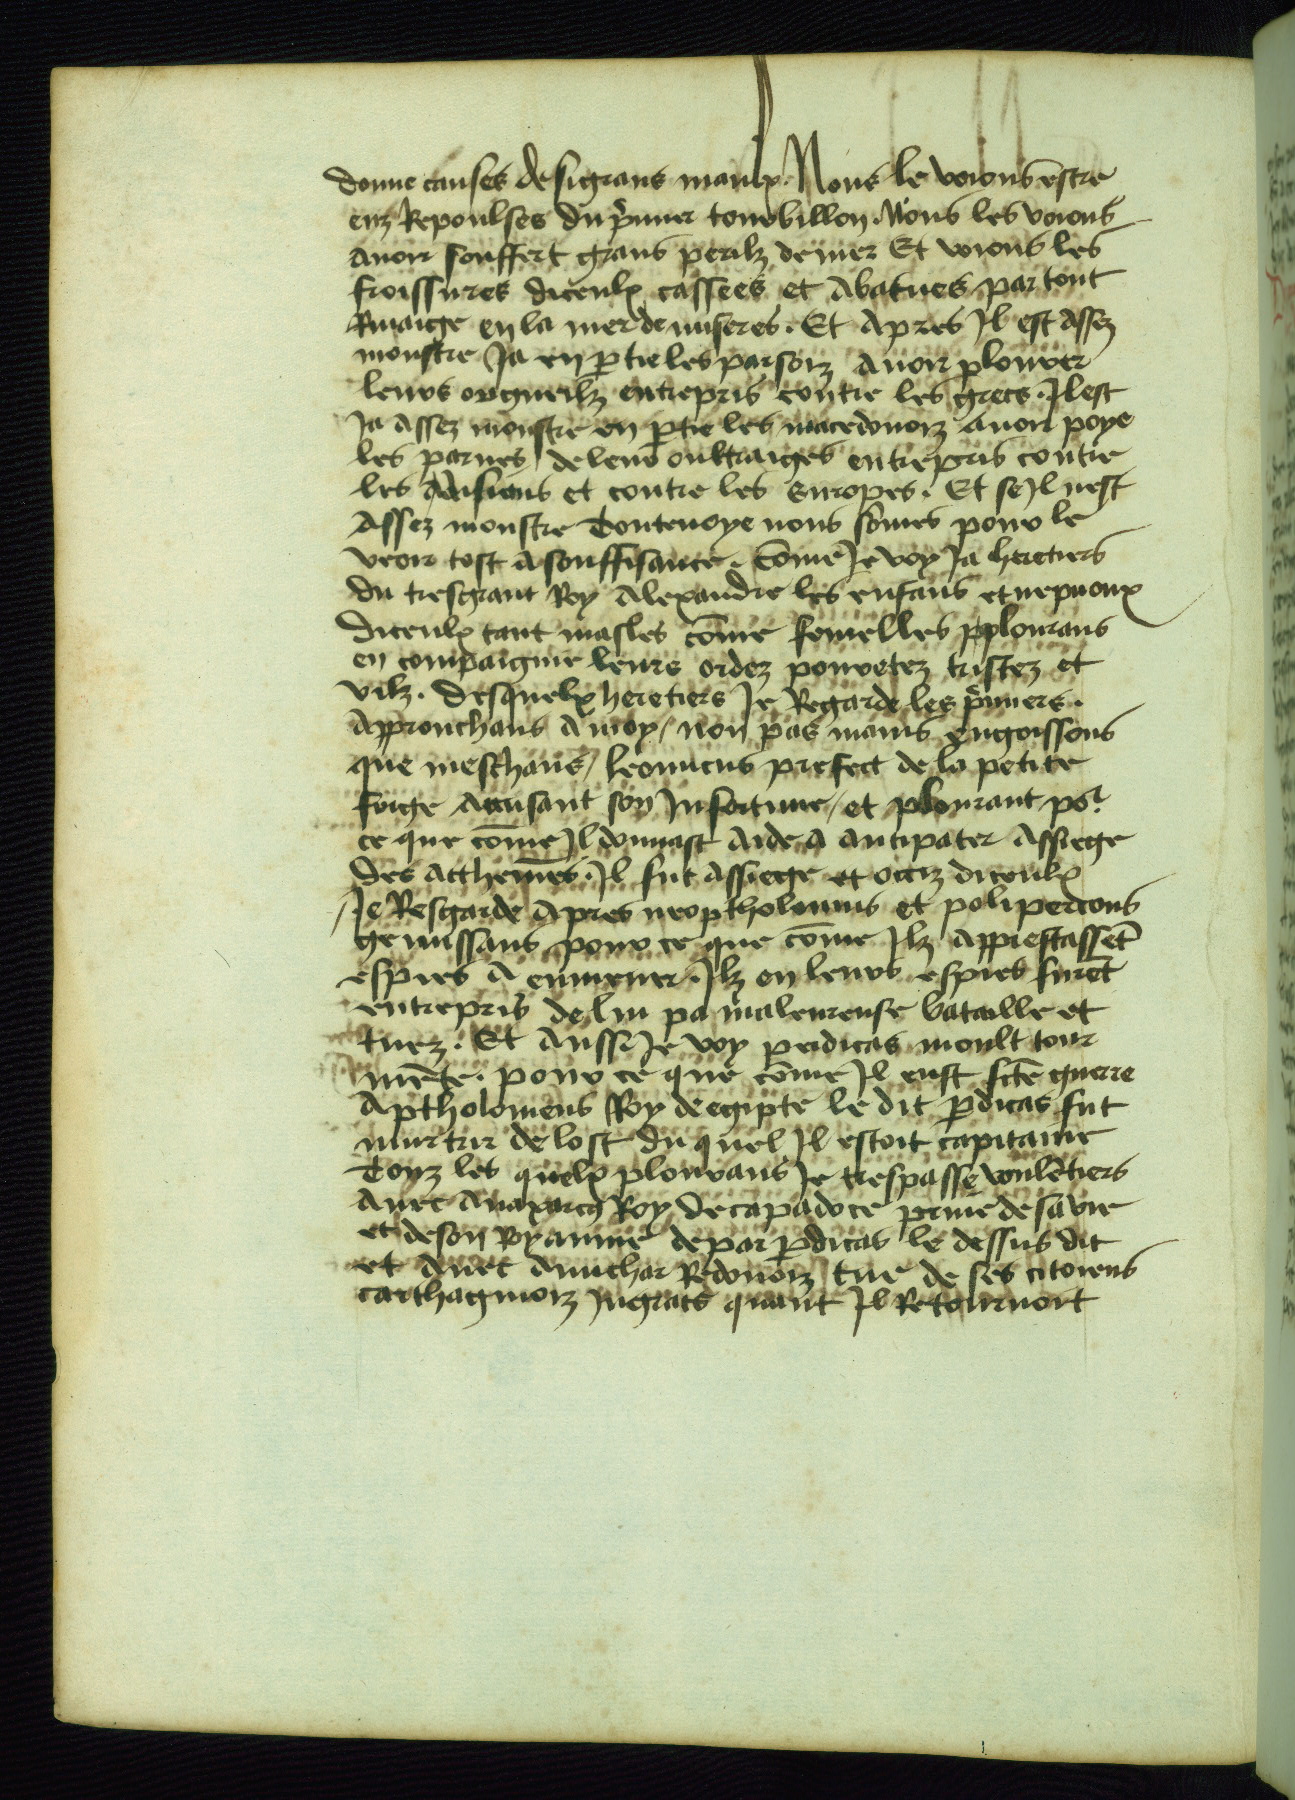 donne causes de si grans maulx. Nous le voions estre
enz Repoulses du p̃mier tourbillon. Nous les voions
avoir souffert grans perilz de mer Et voions les
froissures diceulx cassees et Abatues par tout
Rivaige en la mer de miseres. Et Apres Il est Assez
monstre Ja en ptie les parsoiz avoir plourer
leurs orgueilz entrepris contre les grecs. Il est
Ja Assez monstre en ptie les macedonoiz avoir poye
les parnes de leurs oultraiges entrepris contre
les Assiens et contre les Europes. Et se Il nest
Assez monstre Toutevoye nous sõmes pour le
veoir tost A souffisance. Cõme Je voy Ja heretiers
du tresgrant Roy Alexandre les enfans et nepveux
diceulx tant masles cõme femelles plourans
en compaignie leurs ordez povretez tristez et
vilz. Desquelx heretiers Je Regarde les p̃miers.
Approuchans A moy / non pas mains engoissous
que meschans / leonicus prefect de la petite
frige Accusant son Infortune / et plourant po.r
ce que cõme Il donnast Aide A antipater Assiege
des Atthenies. Il fut Assiege et occiz diceulx
/ Je Resgarde Apres neoptholomus et polipercons
gemissans pour ce que cõme Ilz Apprestassẽt
espies A eumener. Ilz en leurs espies furẽt
entrepris de lui pa maleureuse bataille et
tuez. Et Aussi Je voy perdicas moult tour
mẽte. pour ce que cõme Il eust fcte guerre
A ptholomeus Roy de egipte le dit pdicas fut
murtrir de lost du quel Il estoit capitaine
Toyz les quelx plourans Je trespasse voulẽtiers
Avec Anaxarcy Roy de capadoce prive de sa vie
et de son Royaume de par pdicas le dessus dit
et avec Amichar Redonoiz tue de ses citoiens
carthaginoiz Ingrats quant Il Retournoit